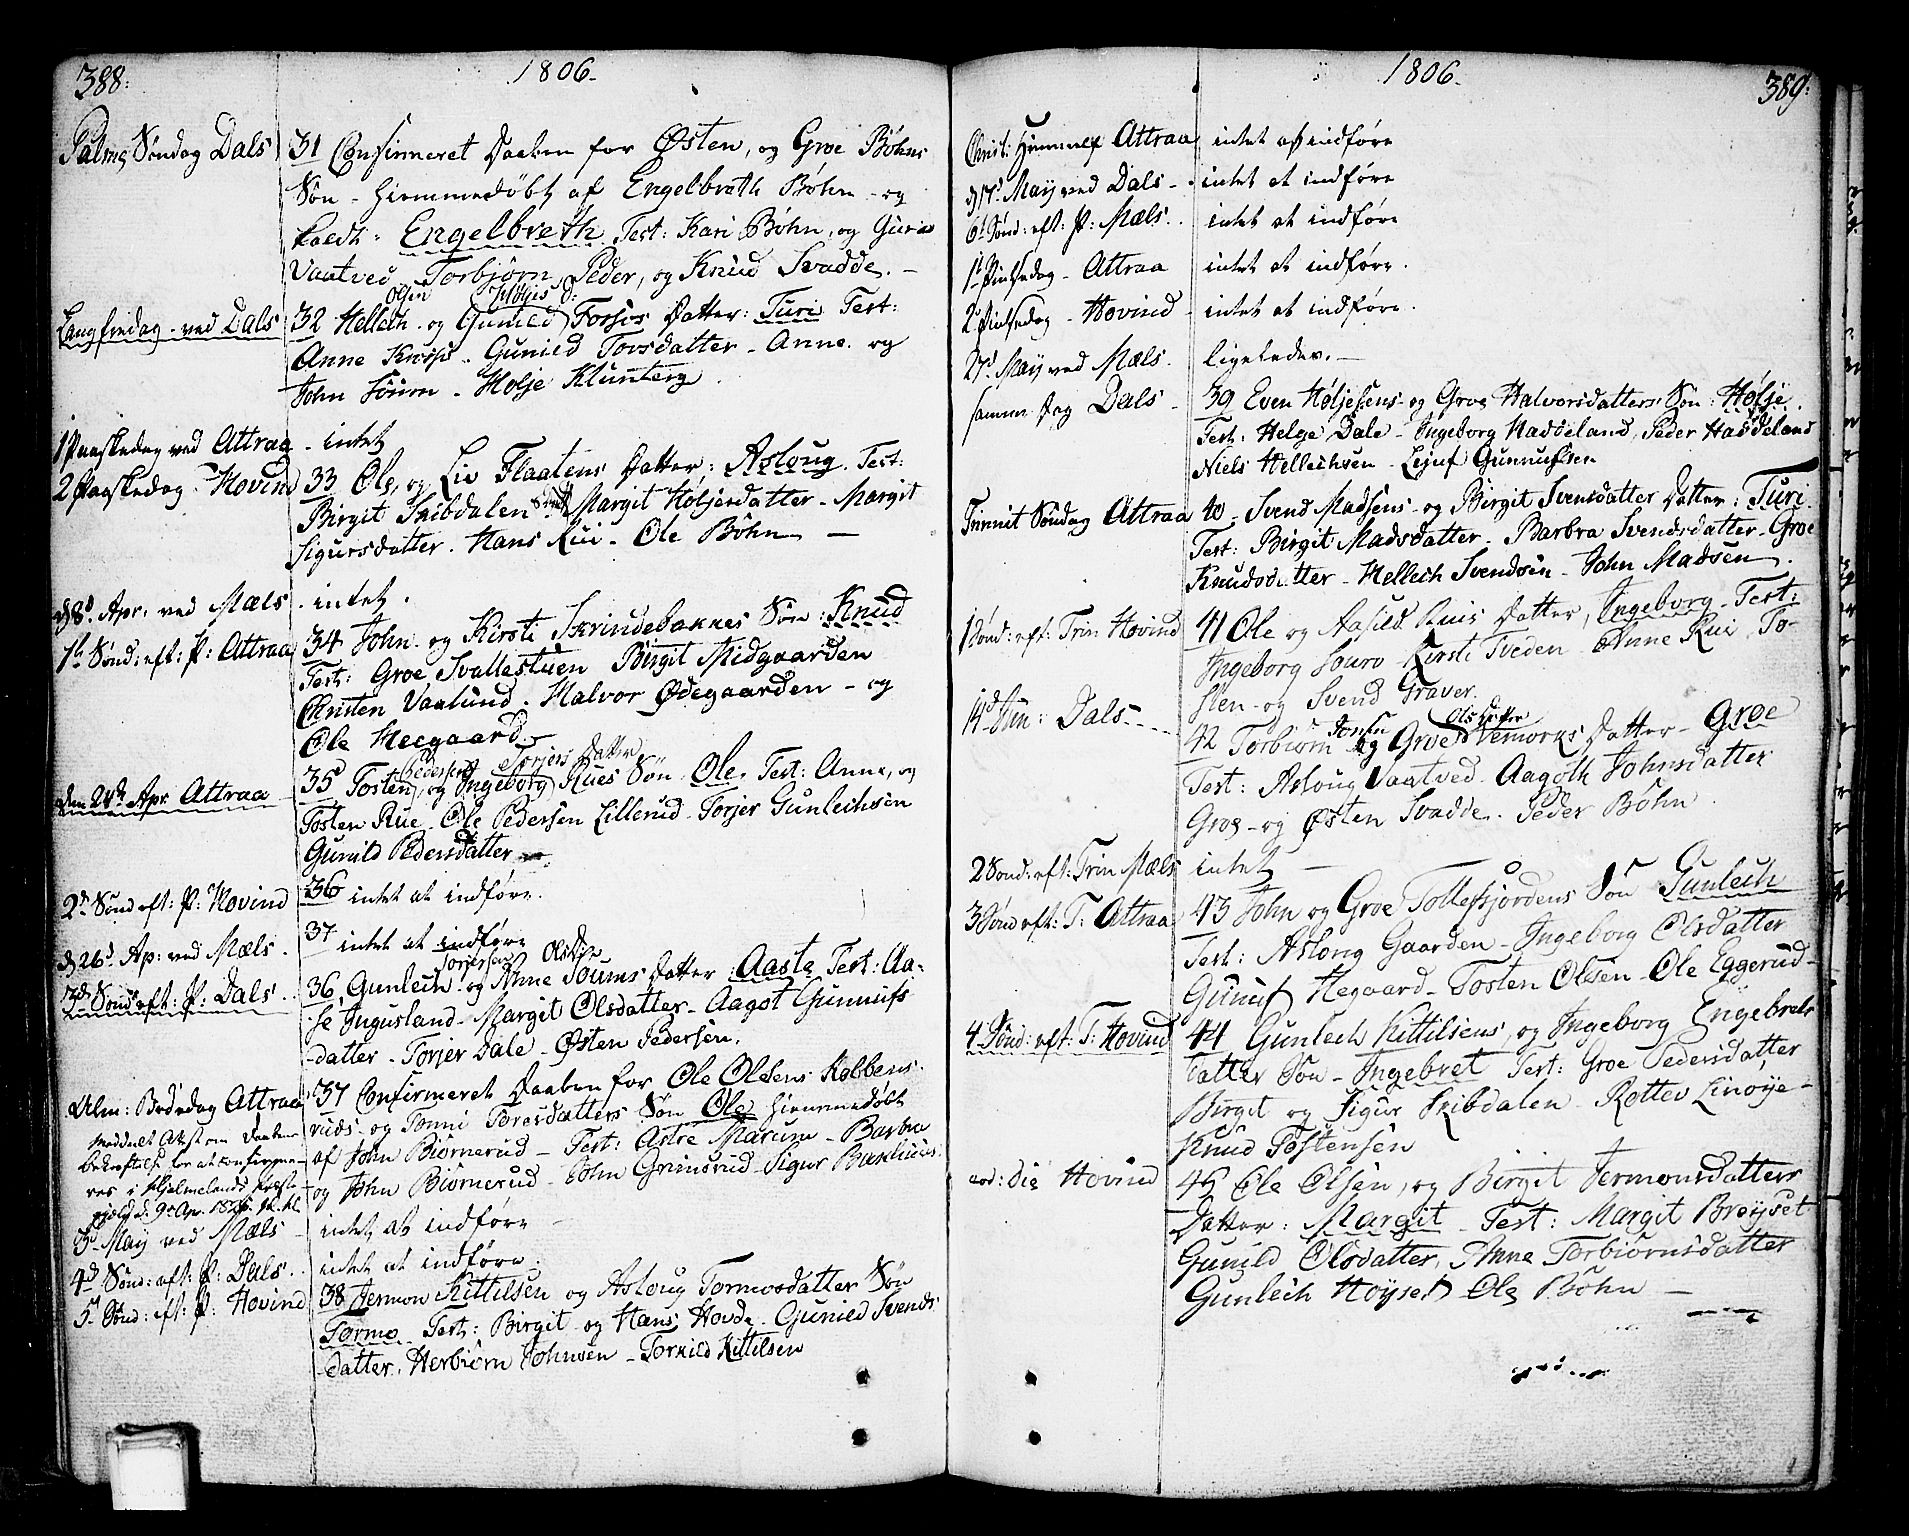 388:
1806.
Palme Søndag Dals
31 Confirmeret Daaben for Østen, og Groe Bøhns
Søn - hiemmedøbt af Engelbreth Bøhn - og
kaldt: Engelbreth. Test: Kari Bøhn, og Guri
Vaatved Torbjørn, Peder, og Knud Svadde. -
Langfredag - ved Dals
Høljes D:
32 Hellech og Gunild Forsøs Datter: Turi Test:
Anne - Gunild Torsdatter - Anne og
John - Hølje Klunterg.
1 Paaskedag ved Attraa - intet
2 Paaskedag - Hovind
33 Ole, og Liv Flaatens Datter: Asloug. Test:
Birgit Skibdalen Margit Høljesdatter - Margit
Sigursdatter. Hans Rui - Ole Bøhn -
d 8d Apr: ved Mæls . intet.
1ste Sønd: eft: P: Attraa
34 John og Kirsti Skrindebaknes Søn: Knud
Test: Groe Svallestuen Birgit Midgaarden
Christen Vaalund. Halvor Ødegaarden - og
Ole Heegaard. -
Pedersen Torjers Datter
den 24d Apr Attraa
35 Tosten, og Ingeborg Rues Søn Ole. Test: Anne, og
Tosten Rue Ole Pedersen Lillerud - Torjer Gunlechsen
Gunild Pedersdatter
2d Sønd eft: P: Hovind
36 intet at indføre.
d 26d Ap: ved Mæls.
37 intet at indføre
Torjersen Olsd:
3d Sønd eft: P: Dals
36 Gunlech og Anne Soums Datter: Aaste Test: Aa-
se Ingusland - Margit Olsdatter - Aagot Gunnufs
-datter - Torjer Dale - Østen Pedersen.
Alm: Bededag Attraa
37 Confirmeret Daaben for Ole Olsens Kobbens
ruds og Tonni Toresdatters Søn Ole hiemmedøbt
af John Biørnerud - Test: Astre Marum - Barbra
og John Biørnerud - John Grimsrud - Sigur
Meddeelt Attest om Daabens
bekræftelse for at confirme-
res i Hjelmelands Præste-
gjæld d. 9de Apr. 1826.
3d May ved Mæls - intet at indføre -
4d Sønd: eft: P: Dals. intet at indføre.
5d Sønd: eft: P: Hovind
38 Jermon Kittilsen og Asloug Tormosdatter Søn
Tormo. Test: Birgit - og Hans Hovde. Gunild Svends
-datter. Herbiørn Johnsen - Torkild Kittilsen
1806.
389.
Christ: Himmelf Attraa intet at indføre
d 17d May ved Dals - intet at indføre
6te Sønd: eft: P: Mæls. intet at indføre
1ste Pintsedag - Attraa intet at indføre.
2 Pintsedag - Hovind - intet at indføre.
27d May ved Mæls. ligeledes. -
samme Dag Dals -
39 Even Høljesens og Groe Halvorsdatters Søn: Hølje.
Test: Helge Dale - Ingeborg Haddeland, Peder Haddeland
Niels Hellechsen - Lejuf Gunnufsen
Trinit Søndag Attraa
40 - Svend Madsens - og Birgit Svensdatter Datter: Turi.
Test: Birgit Madsdatter - Barbra Svendsdatter - Groe
Knudsdatter - Hellech Svendsen - John Madsen.
1 Sønd: eft: Trin Hovind
41 Ole og Aasild Ruis Datter, Ingeborg - Test:
Ingeborg - Kirsti Tveden Anne Rui To-
sten - og Svend Graver.
14d Jun: Dals - - -
Jonsen Olsdatter
42 Torbiørn og Groe Vemorks Datter - Groe
Test: Asloug Vaatved. Aagoth Johnsdatter
Groe - og Østen Svadde. Peder Bøhn.
2 Sønd: eft: Trin Mæls intet -
3 Sønd eft: T: Attraa
43 John og Groe Tollefsjordens Søn Gunlech
Test: Aslong Gaarden - Ingeborg Olsdatter
Gunuf Hegaard - Tosten Olsen - Ole Eggerud -
4 Sønd: eft: T: Hovind
44 Gunlech Kittilsens, og Ingeborg Engebrets
Datter Søn - Ingebret Test: Groe Pedersdatter
Birget og Sigur Skibdalen Rollev Linøye -
Knud Tostensen
eod: die Hovind
45 Ole Olsen, og Birgit Jermonsdatters
Datter: Margit - Test: Margit Brøyset
Gunild Olsdatter, Anne Torbiørnsdatter
Gunlech Høyset Ole Bøhn -